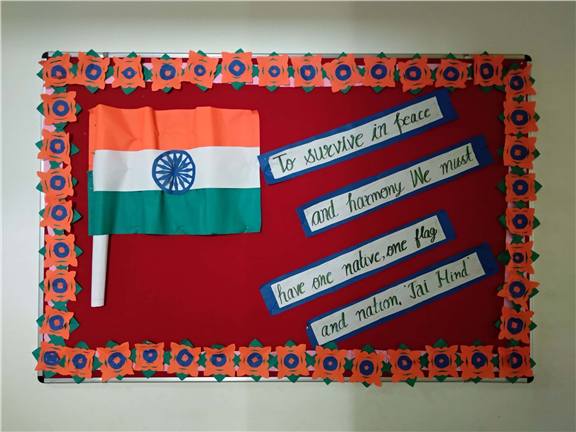 To survive in peace
and harmony We must
have one native, one flag
and nation, 'Jai Hind'